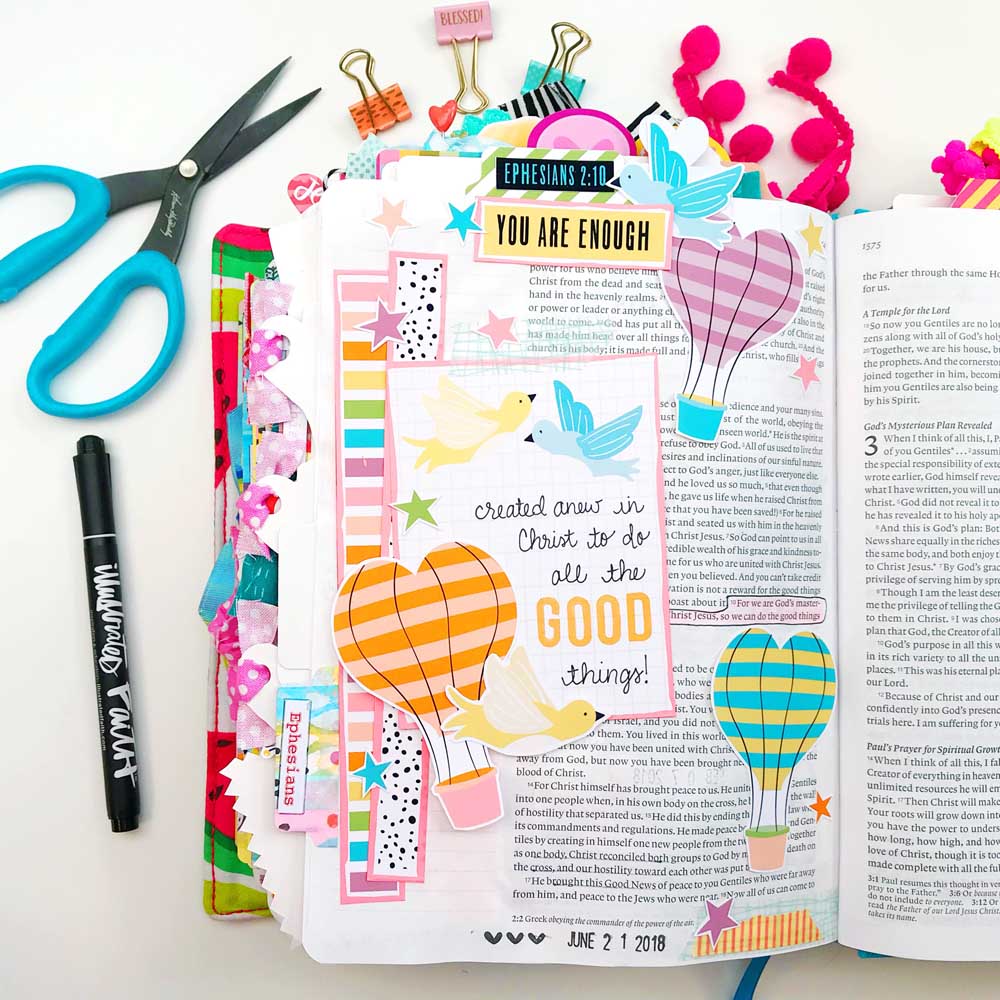 BLESSED!
EPHESIANS 2:10
YOU ARE ENOUGH
power for us who believe him
Christ from the dead and seat
hand in the heavenly realms.
or power or leader or anything
world to come. God has put all
has made him head over all things
church is his body; it is made full and
created anew in
Christ to do
all the
GOOD
things!
edience and your many sins.
of the world, obeying the
unseen world.* He is the spirit at
refuse to obey God. 3All of us used to live that
esires and inclinations of our sinful nature.
ect to God's anger, just like everyone else.
nd he loved us so much, 5that even though
, he gave us life when he raised Christ from
e that you have been saved!) 6For he raised
rist and seated us with him in the heavenly
Christ Jesus. 7So God can point to us in all
credible wealth of his grace and kindness to-
for us who are united with Christ Jesus.
en you believed. And you can't take credit
vation is not a reward for the good things
oast about it. 10For we are God's master-
hrist Jesus, so we can do the good things
who
bodies a
d. You w
of Israel, and you did not
to them. You lived in this world
But now you have been united with Christ
away from God, but now you have been brought
blood of Christ.
14For Christ himself has brought peace to us. He united
Gentiles
into one people when, in his own body on the cross, he
the wall
of hostility that separated us. 15He did this by ending the
law
its commandments and regulations. He made peace
and Gen-
tiles by creating in himself one new people from the two
together
as one body, Christ reconciled both groups to God by
death on
the cross, and our hostility toward each other was put
17He brought this Good News of peace to you Gentiles who were far away
from him, and peace to the Jews who were near. 18Now all of us can come to
2:2 Greek obeying the commander of the power of the air.
JUNE 2 1 2018
Ephesians
illustrated
Faith
illustratedfaith.com
1575
the Father through the same Ho
for us.
A Temple for the Lord
19So now you Gentiles are no longe
zens along with all of God's holy
20Together, we are his house, bu
the prophets. And the cornerston
joined together in him, becomin
him you Gentiles are also being
by his Spirit.
God's Mysterious Plan Revealed
3 When I think of all this, I, Pa
of you Gentiles* . . . 2assumin
the special responsibility of exte
wrote earlier, God himself reveal
what I have written, you will und
Christ. 5God did not reveal it to
he has revealed it to his holy apo
6And this is God's plan: Both
News share equally in the riches
the same body, and both enjoy th
to Christ Jesus.* 7By God's grace
privilege of serving him by spre
8Though I am the least deserv
me the privilege of telling the G
to them in Christ. 9I was chosen
plan that God, the Creator of all
10God's purpose in all this wa
in its rich variety to all the un
places. 11This was his eternal plan
our Lord.
12Because of Christ and our
confidently into God's presence
trials here. I am suffering for yo
Paul's Prayer for Spiritual Growth
14When I think of all this, I fal
Creator of everything in heaven
unlimited resources he will em
Spirit. 17Then Christ will make
Your roots will grow down into
you have the power to unders
how long, how high, and how
love of Christ, though it is too
made complete with all the ful
3:1 Paul resumes this thought in vers
pray to the Father." 3:6 Or because
do not include to everyone. 3:12 Or
read the Father of our Lord Jesus Christ
takes its name.